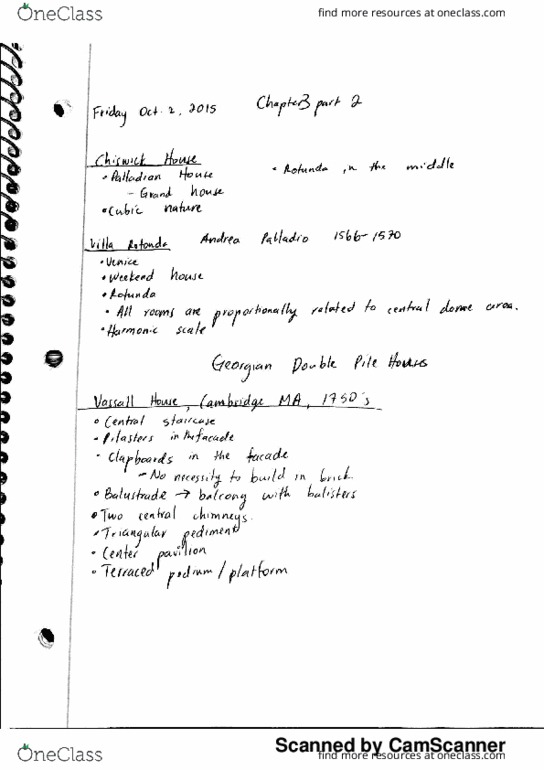 OneClass
find more resources at oneclass.com
Friday Oct. 2, 2015 Chapter 3 part 2
Chiswick House
• Palladian House • Rotunda in the middle
– Grand house
• Cubic nature
Villa Rotonda Andrea Palladio 1566-1570
• Venice
• Weekend house
• Rotunda
• All rooms are proportionally related to central dome area.
• Harmonic scale
Georgian Double Pile Houses
Vassall House, Cambridge MA, 1750's
• Central staircase
• Pilasters in the facade
• Clapboards in the facade
– No necessity to build in brick
• Balustrade → balcony with balisters
• Two central chimneys.
• Triangular pediment
• Center pavilion
• Terraced podium / platform
Scanned by CamScanner
OneClass
find more resources at oneclass.com